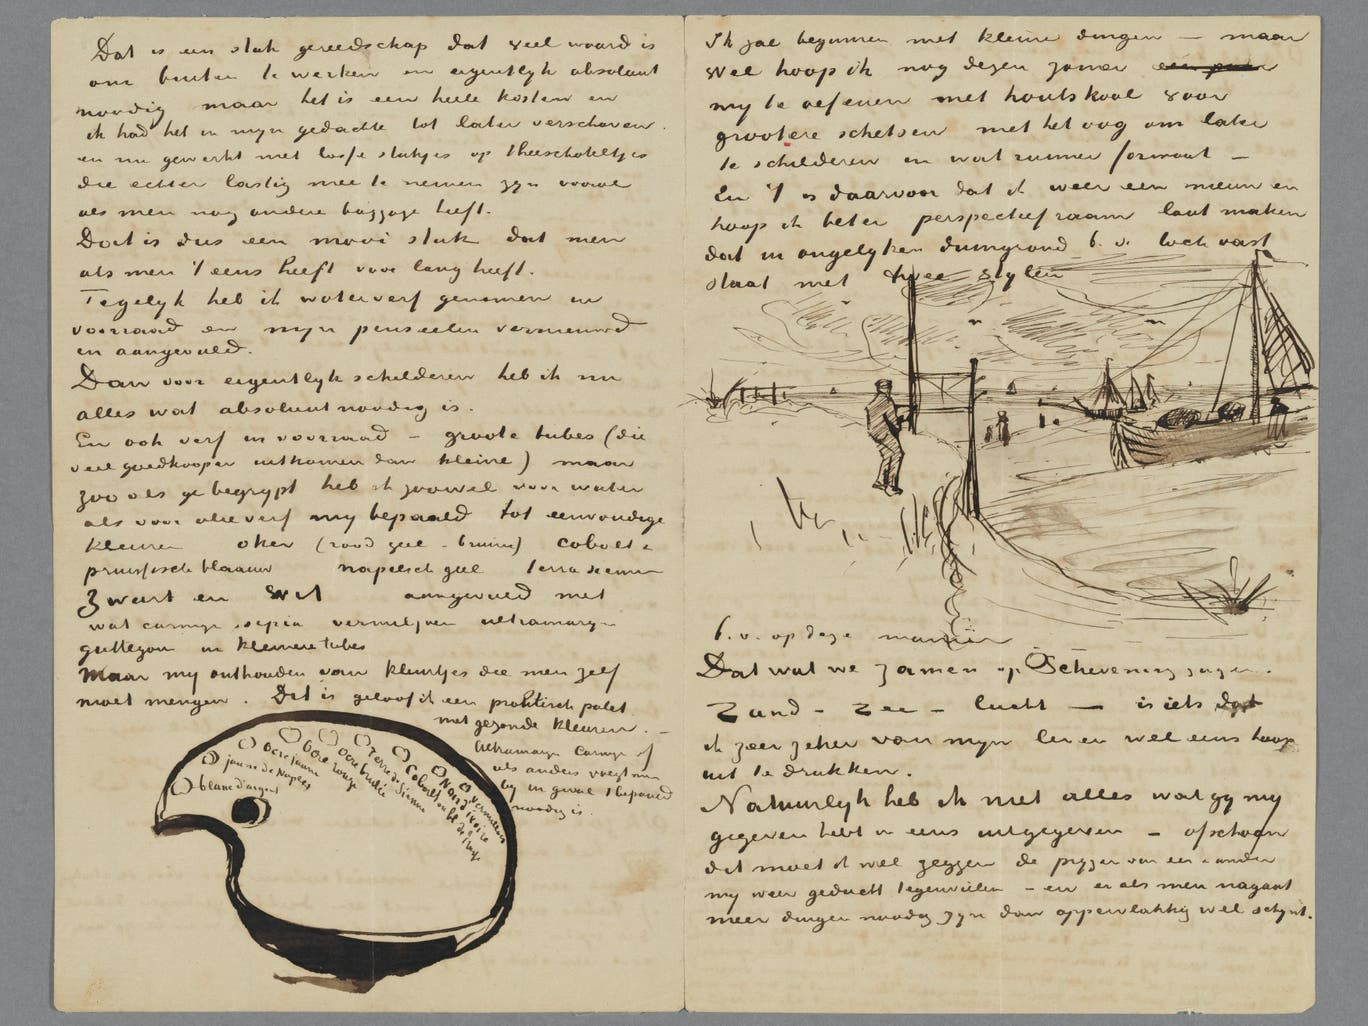 Dat is een stuk gereedschap dat veel waard is
om buiten te werken en eigentlyk absoluut
noodig maar het is een heele kosten en
ik had het in myn gedachte tot later verschoven.
en nu gewerkt met losse stukjes op theeschoteltjes
die echter lastig mee te nemen zyn vooral
als men nog andere baggage heeft.
Dat is dus een mooi stuk dat men
als men 't eens heeft voor lang heeft.
Tegelyk heb ik waterverf genomen in
voorraad en myn penseelen vernieuwd
en aangevuld.
Dan voor eigentlyk schilderen heb ik nu
alles wat absoluut noodig is.
En ook verf in voorraad – groote tubes (die
veel goedkooper uitkomen dan kleine) maar
zoo als ge begrypt heb ik zoowel voor water
als voor olieverf my bepaald tot eenvoudige
kleuren oker (rood geel – bruin) cobalt &
pruissisch blaauw napelsch geel terra sienna
Zwart en wit aangevuld met
wat carmyn sepia vermiljoen ultramaryn
guttegom in kleinere tubes
Maar my onthouden van kleurtjes die men zelf
moet mengen. Dit is geloof ik een praktisch palet
met gezonde kleuren. –
Ultramaryn Carmyn of
als anders voegt men
by in geval 't bepaald
noodig is.
blanc d'argent
jaune de Naples
ocre jaune
ocre rouge
ocre brulée
Terre de Sienne
Cobalt ou bl. de Prusse
Noir d'ivoire
vermillon
Ik zal beginnen met kleine dingen – maar
wel hoop ik nog dezen zomer
my te oefenen met houtskool voor
grootere schetsen met het oog om later
te schilderen in wat ruimer formaat –
En 't is daarvoor dat ik weer een nieuw en
hoop ik beter perspectief raam laat maken
dat in ongelyken duingrond b.v. toch vast
staat met twee stylen
b.v. op deze manier
Dat wat we zamen op Schevening zagen.
Zand – Zee – lucht — is iets dat
ik zeer zeker van myn leven wel eens hoop
uit te drukken.
Natuurlyk heb ik niet alles wat gy my
gegeven hebt in eens uitgegeven – ofschoon
dit moet ik wel zeggen de pryzen van een & ander
my weer geducht tegenvielen – en er als men nagaat
meer dingen noodig zyn dan oppervlakkig wel schynt.